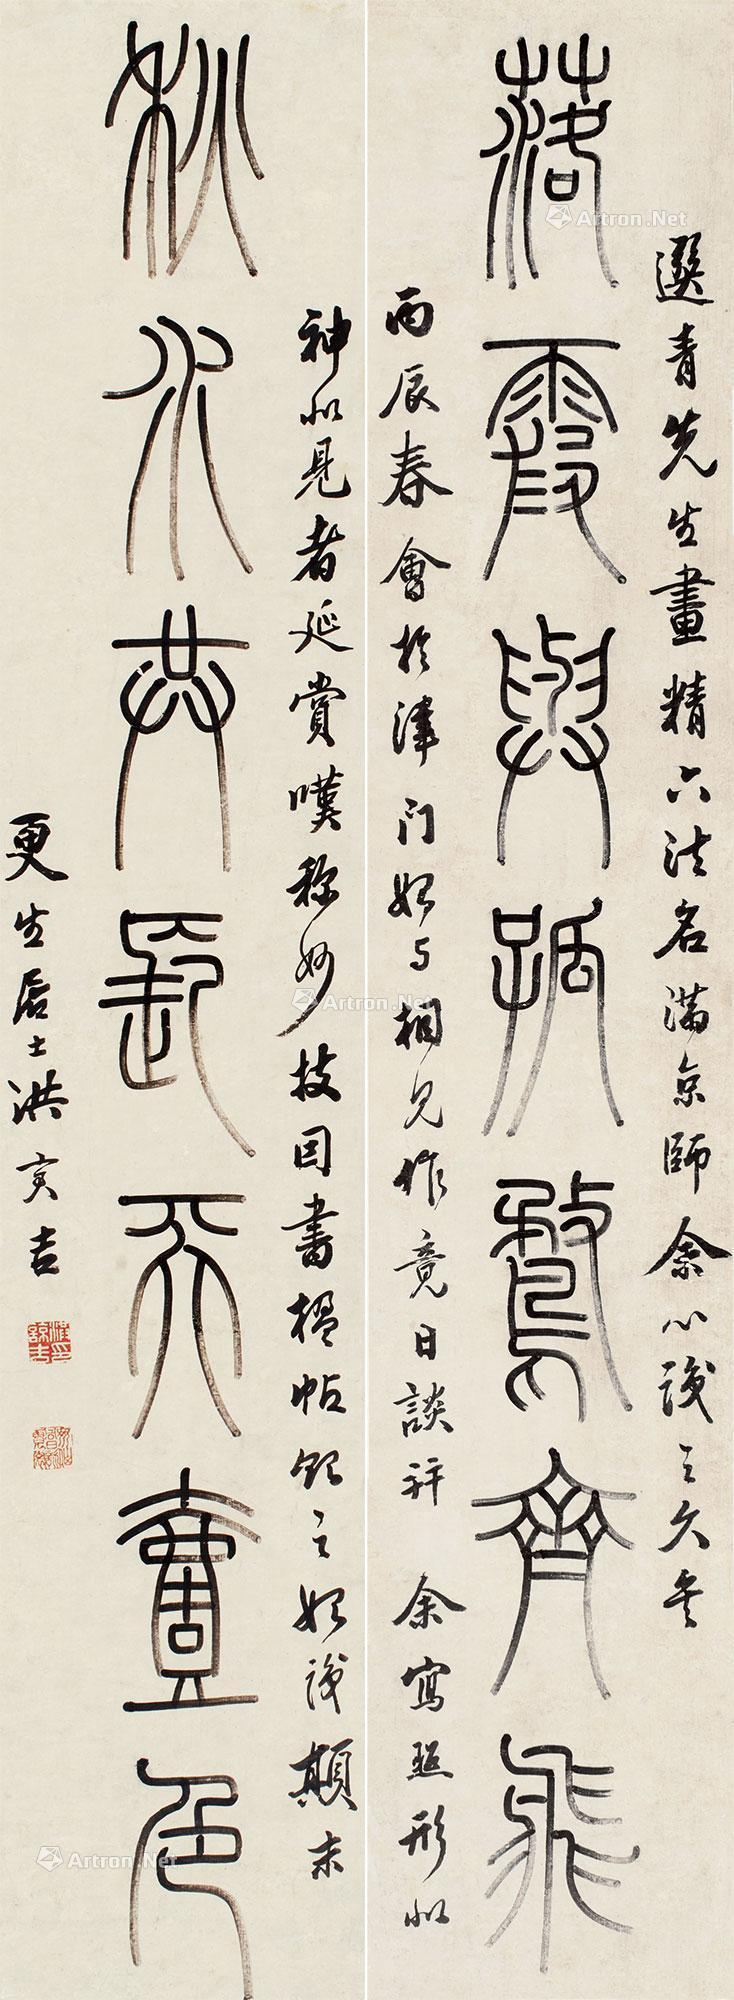 落霞與孤鶩齊飛
選青先生畫精六法名滿京師余心識之久矣
丙辰春會於津門始与相見作竟日談并余寫照形似
秋水共長天一色
神似見者延賞嘆称妙技因書楹帖報之始識顛末
更生居士洪亮吉
Artron.Net
Artron.Net
Artron.Net
Artron.Net